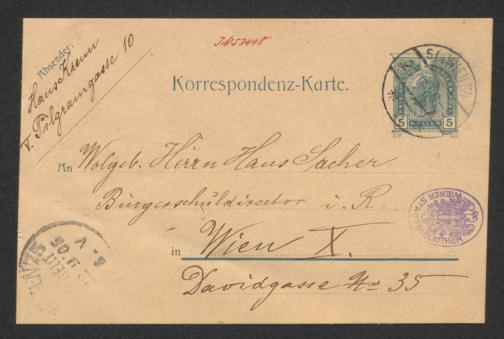 INS3448
Absender:
Hans
V. Pilgramgasse 10
Korrespondenz-Karte.
5 HELLER 5
An Wolgeb. Herrn Hans Sacher
Bürgerschuldirector i. R.
in Wien X.
Davidgasse No 35
WIENER STADTBIBLIOTHEK